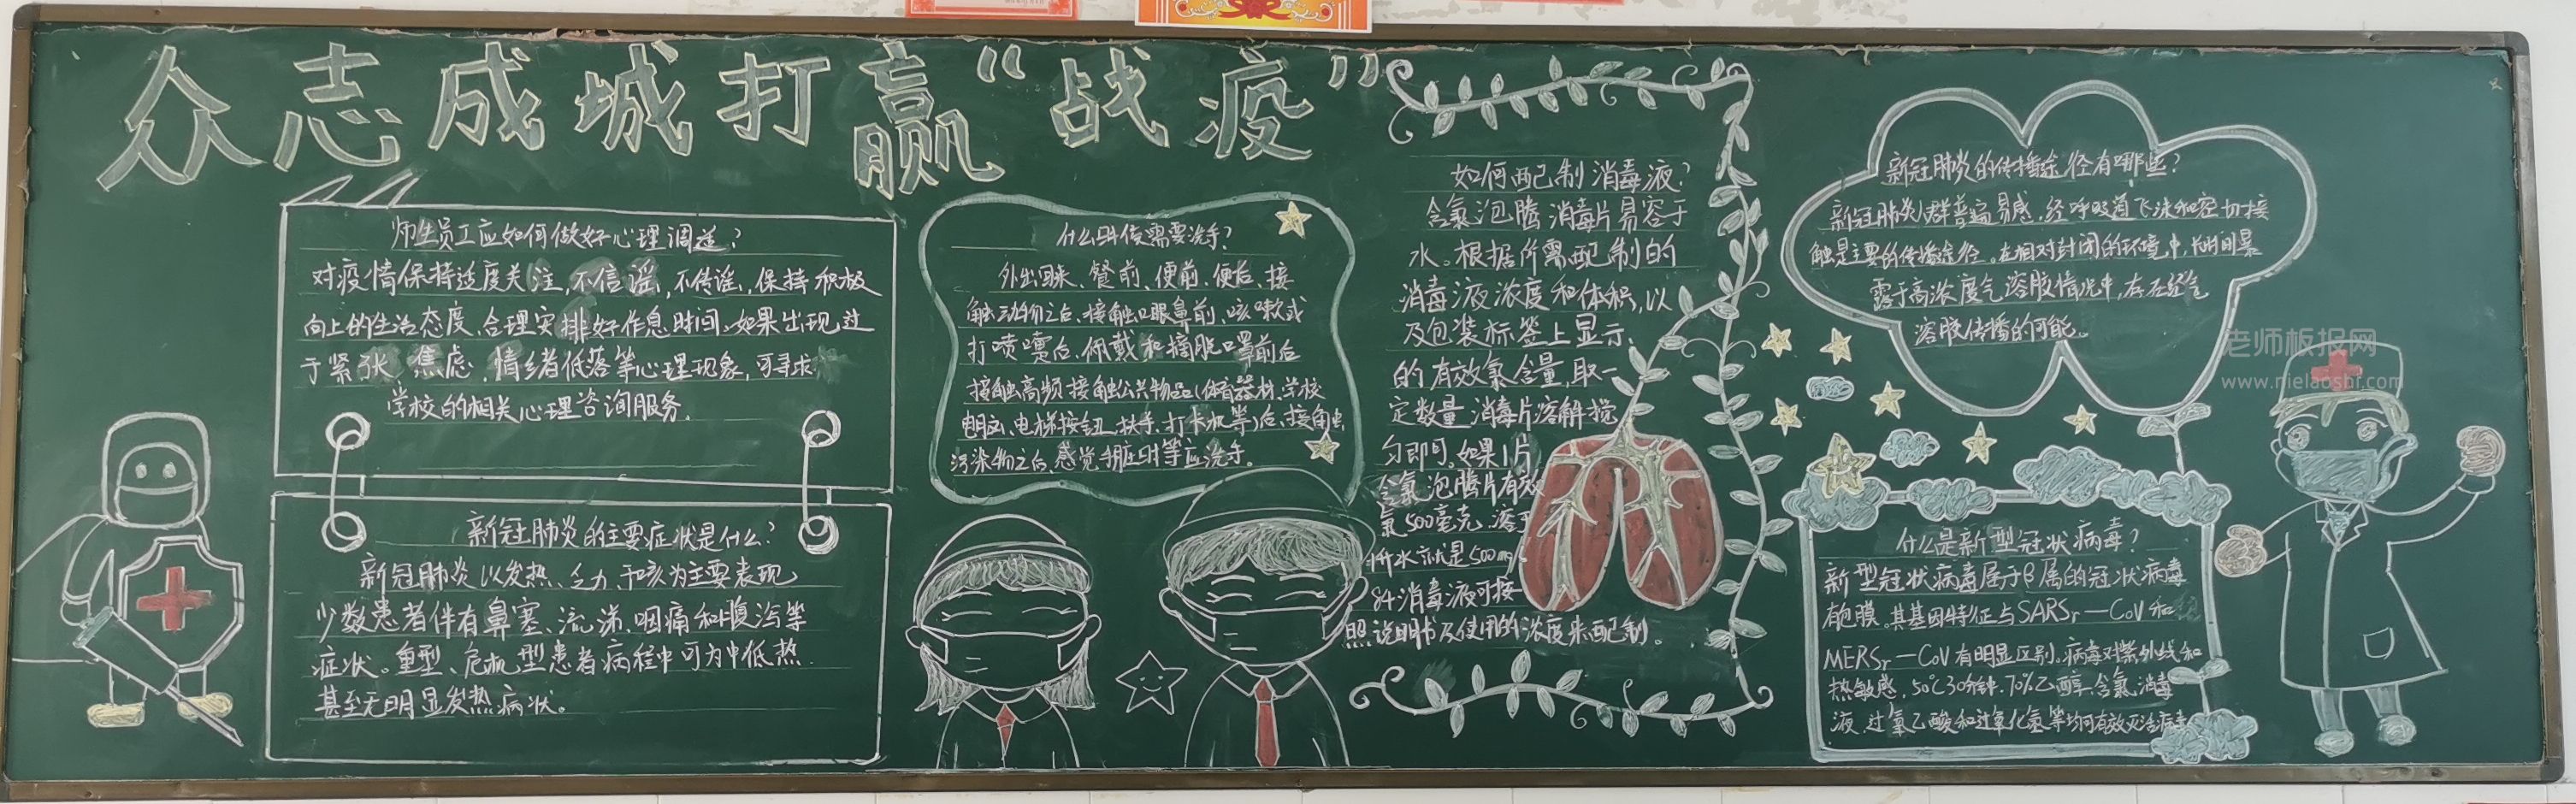 众志成城打赢“战疫”
师生员工应如何做好心理调适?
对疫情保持适度关注,不信谣,不传谣,保持积极
向上的生活态度,合理安排好作息时间。如果出现过
于紧张、焦虑,情绪者低落等心理现象,可寻求
学校的相关心理咨询服务。
新冠肺炎的主要症状是什么?
新冠肺炎以发热、乏力、干咳为主要表现
少数患者伴有鼻塞、流涕、咽痛和腹泻等
症状。重型、危重型患者病程中可为中低热
甚至无明显发热病状。
什么时候需要洗手?
外出回来、餐前、便前、便后、接
触动物之后、接触口眼鼻前、咳嗽或
打喷嚏后、佩戴和摘脱口罩前后
接触高频接触公共物品(体育器材、学校
电脑、电梯按钮、扶手、打卡机等)后、接触
污染物之后、感觉手脏时等应洗手。
如何配制消毒液?
含氯泡腾消毒片易容于
水。根据所需配制的
消毒液浓度和体积,以
及包装标签上显示
的有效氯含量,取一
定数量消毒片溶解搅
匀即可。如果1片
含氯泡腾片有效
氯500毫克,溶于
升水就是500mg/
84消毒液可按
照说明书及使用的浓度来配制。
新冠肺炎的传播途径有哪些?
新冠肺炎人群普遍易感,经呼吸道飞沫和密切接
触是主要的传播途径。在相对封闭的环境中,长时间暴
露于高浓度气溶胶情况中,存在经气
溶胶传播的可能。
老师板报网
什么是新型冠状病毒?
新型冠状病毒属于β属的冠状病毒
有胞膜。其基因特征与SARSr—CoV和
MERSr—CoV有明显区别。病毒对紫外线和
热敏感,50℃30分钟、70%乙醇、含氯消毒
液、过氧乙酸和过氧化氢等均可有效灭活病毒